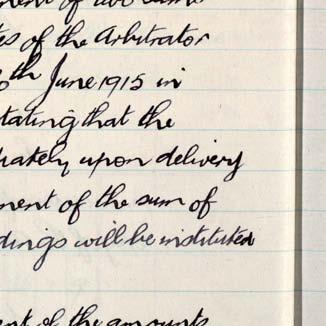 of the Arbitrator
th June 1915 in
tating that the
iately upon delivery
ment of the sum of
dings will be instituted
nt of the amounts